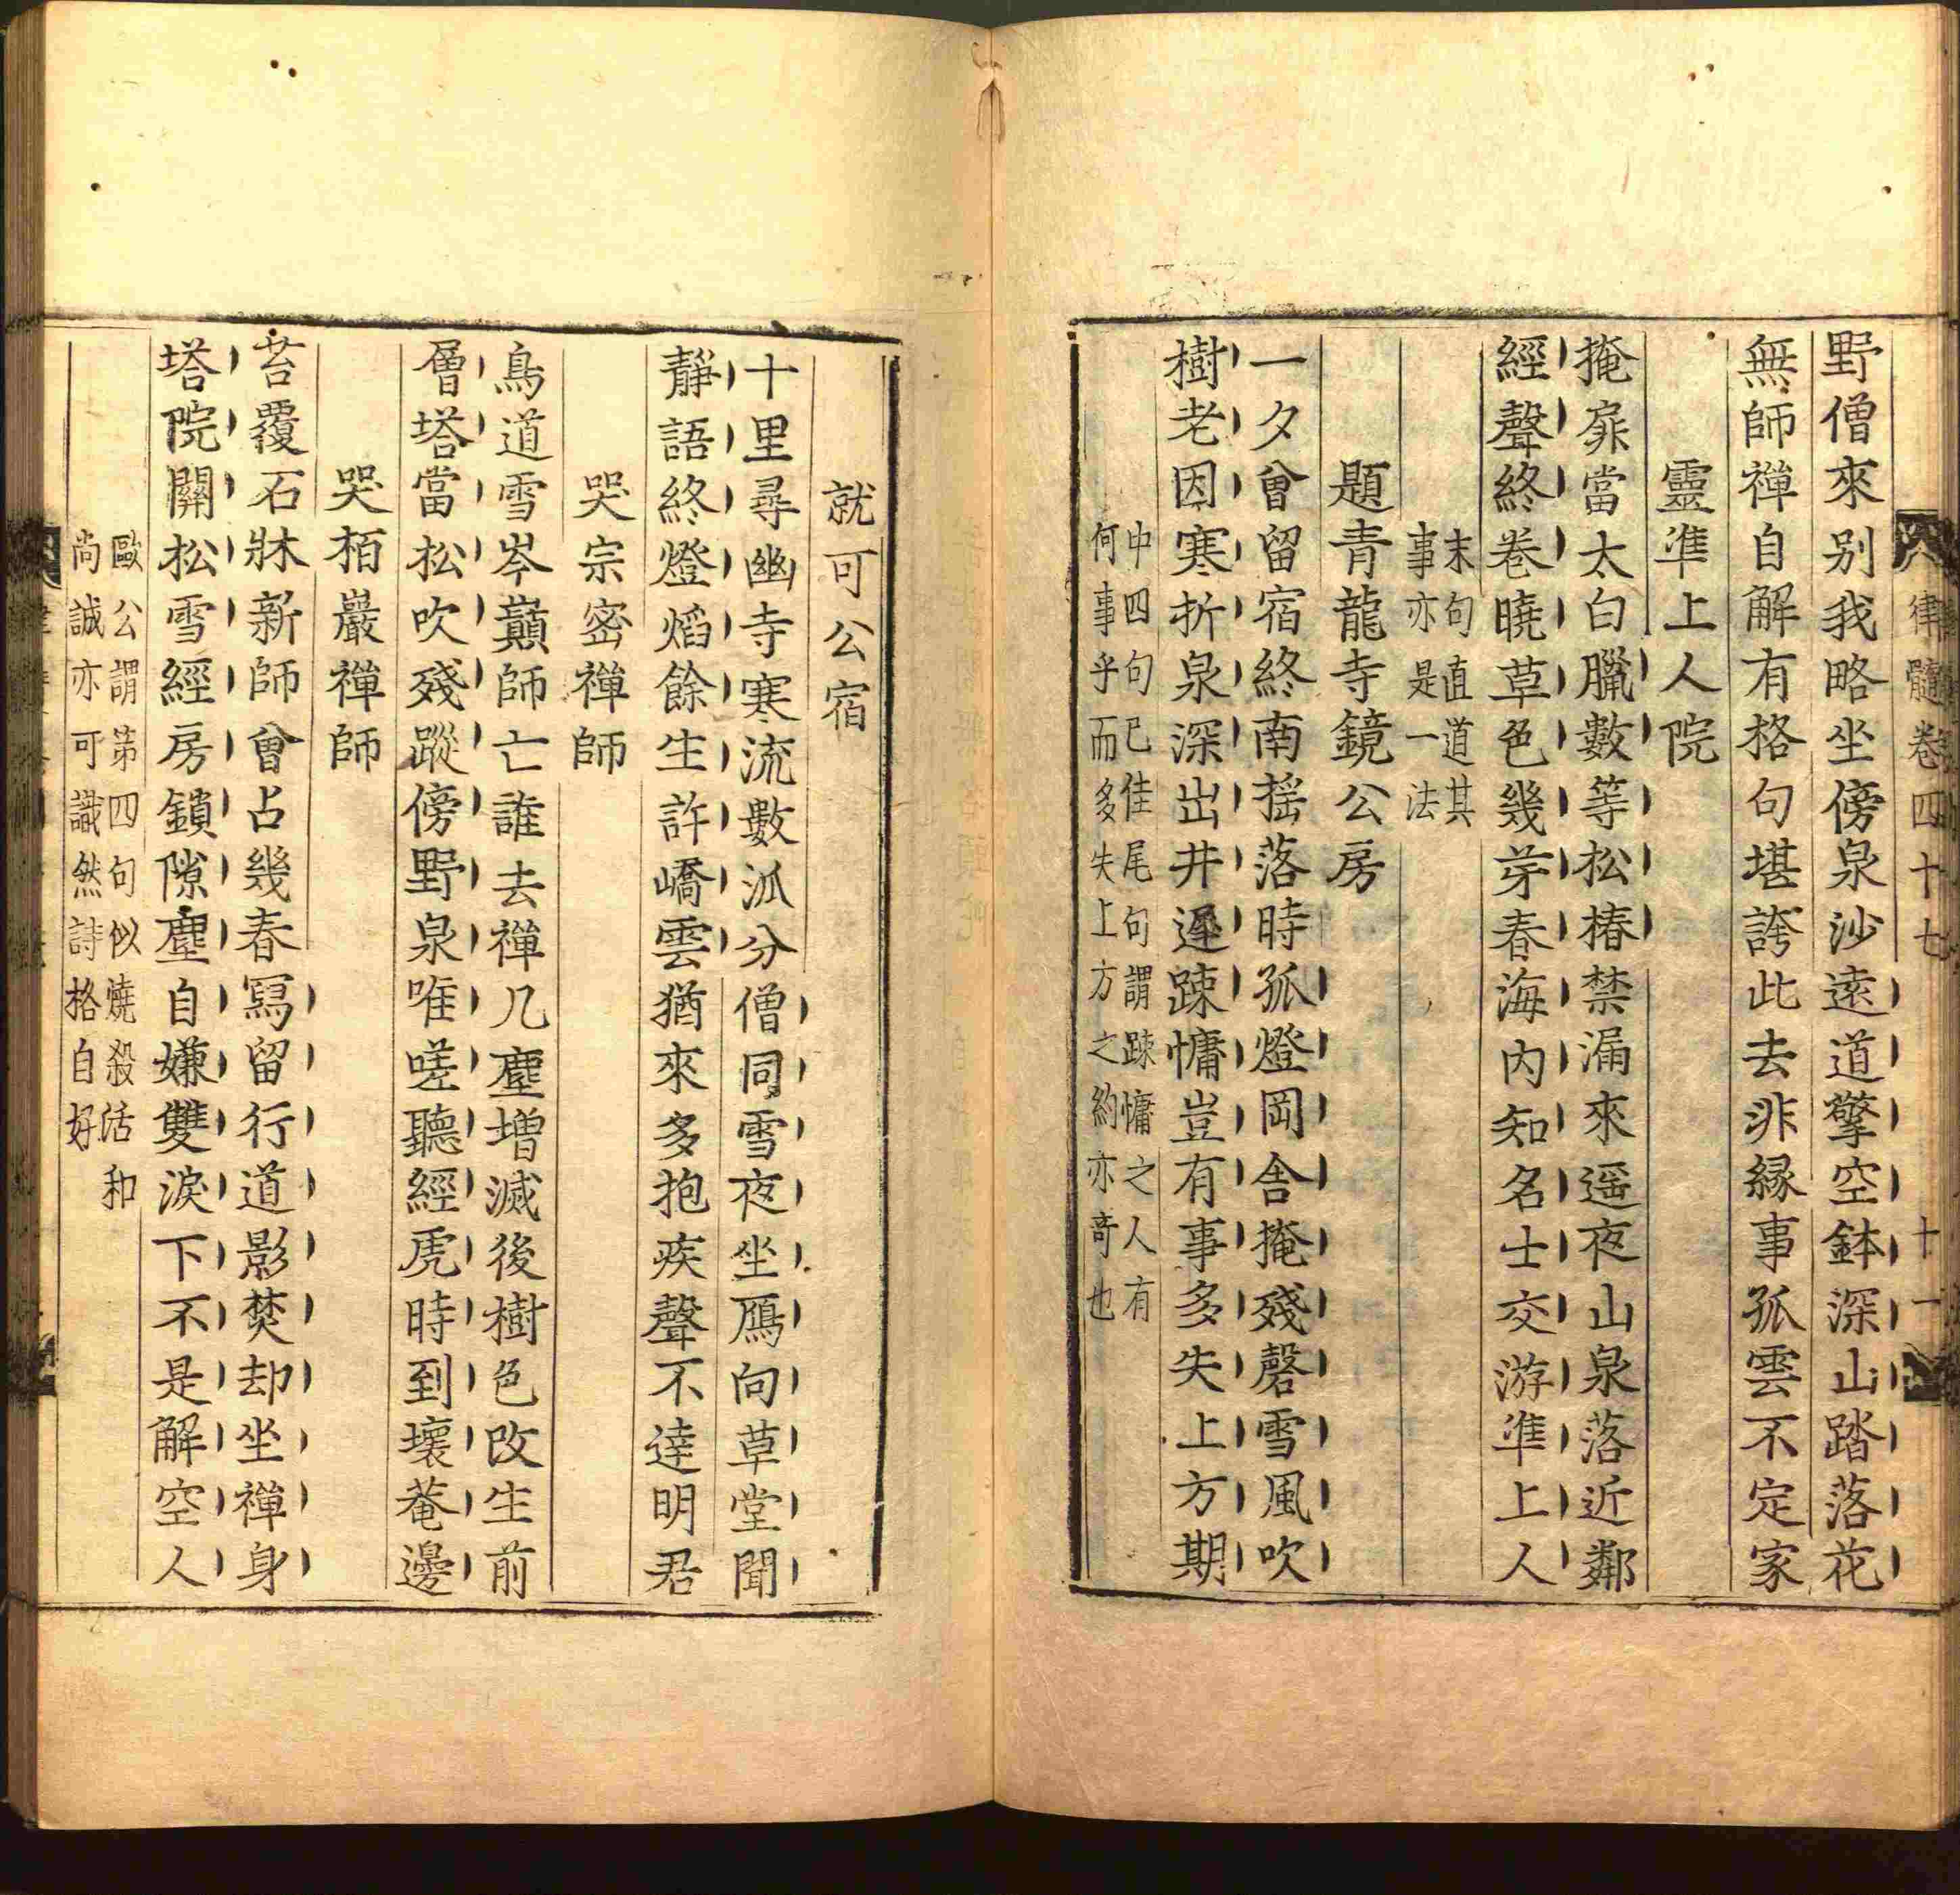 律髓卷四十七
十一
野僧來别我略坐傍泉沙遠道擎空鉢深山踏落花
無師禪自解有格句堪誇此去非縁事孤雲不定家
靈準上人院
掩扉當太白臘數等松椿禁漏來遥夜山泉落近鄰
經聲終卷曉草色幾芽春海内知名士交游準上人
末句直道其
事亦是一法
題青龍寺鏡公房
一夕曾留宿終南揺落時孤燈岡舍掩殘磬雪風吹
樹老因寒折泉深出井遲踈慵豈有事多失上方期
中四句已佳尾句謂踈慵之人有
何事乎而多失上方之約亦竒也
就可公宿
十里尋幽寺寒流數派分僧同雪夜坐鴈向草堂聞
靜語終燈熖餘生許嶠雲猶來多抱疾聲不逹明君
哭宗密禪師
鳥道雪岑巔師亡誰去禪几塵増滅後樹色改生前
層塔當松吹殘蹤傍野泉唯嗟聽經虎時到壞菴邊
哭栢巖禪師
苔覆石牀新師曾占幾春冩留行道影焚却坐禪身
塔院關松雪經房鎖隙塵自嫌雙淚下不是解空人
歐公謂第四句似燒殺活和
尚誠亦可識然詩格自好